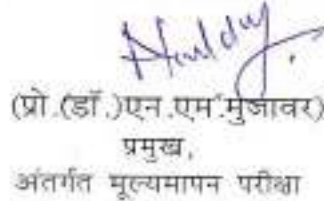 (प्रो.(डॉ.)एन.एम.मुजावर)
प्रमुख,
अंतर्गत मूल्यमापन परीक्षा